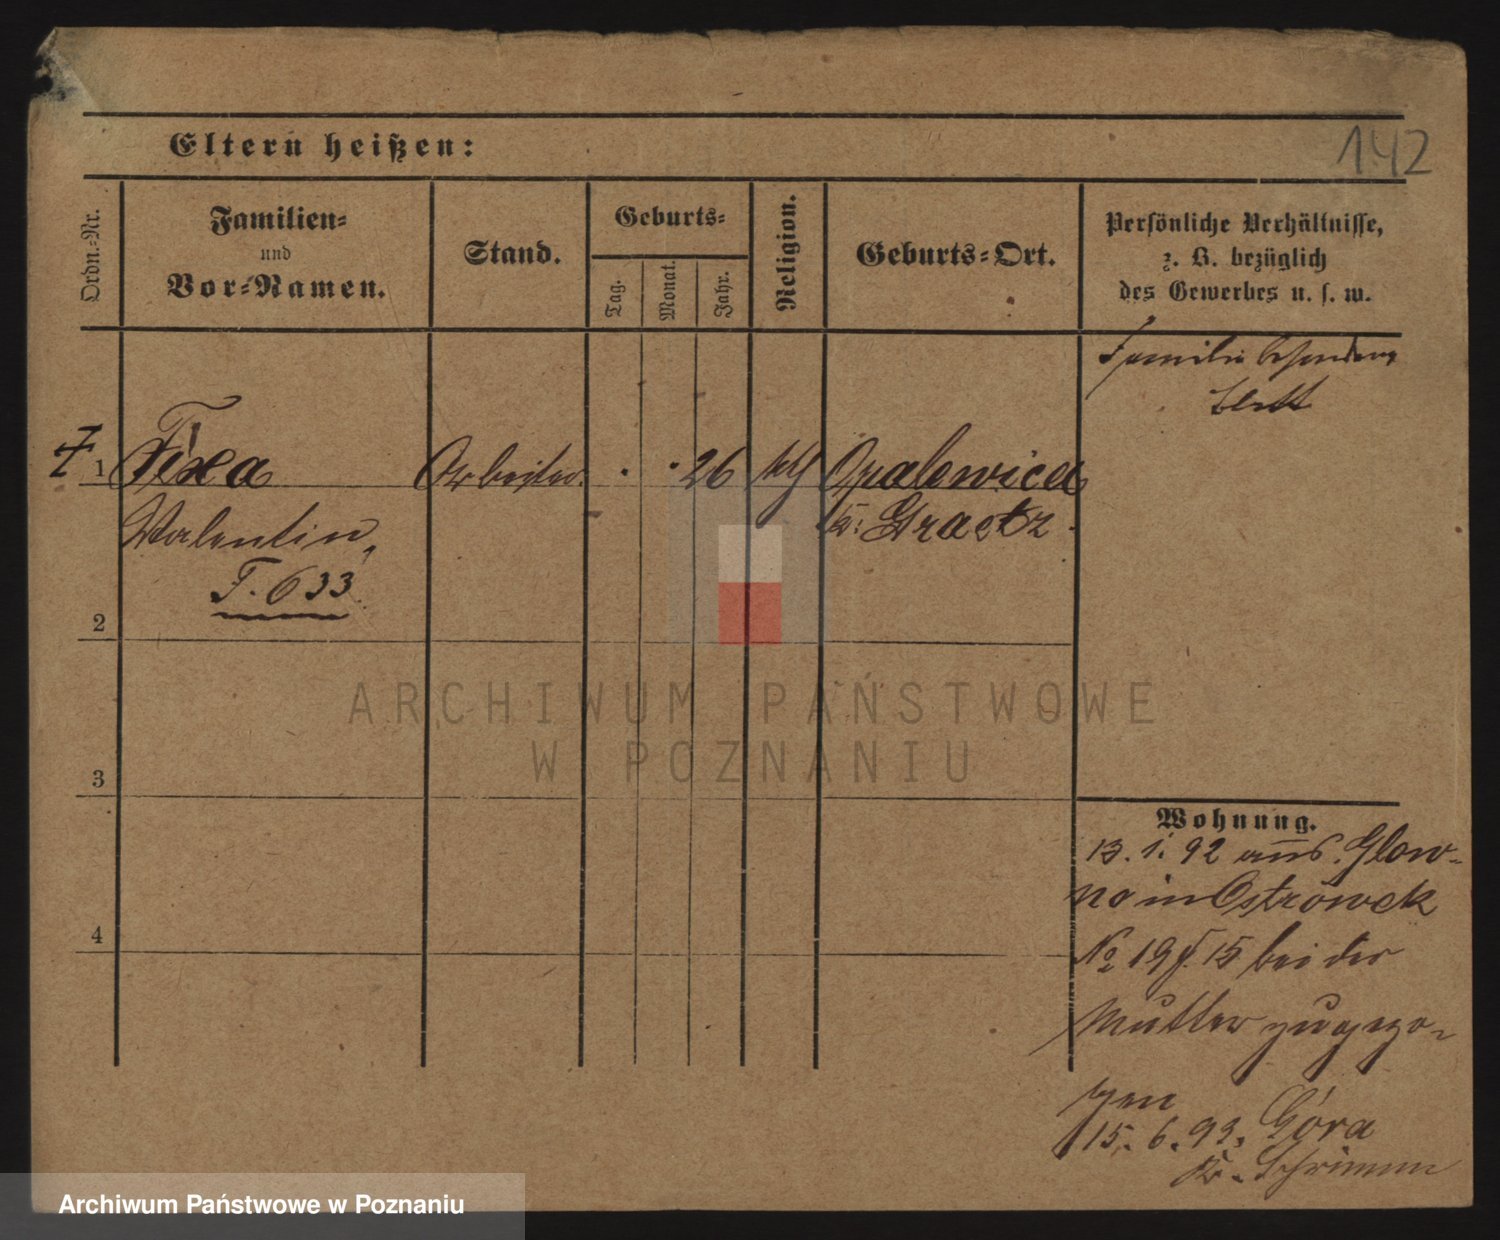 142
Eltern heißen:
Ordn.-Nr.
Familien-
und
Vor-Namen.
Stand.
Geburts-
Tag.
Monat.
Jahr.
Religion.
Geburts-Ort.
Persönliche Verhältnisse,
z. B. bezüglich
des Gewerbes u. s. w.
Familie besonderes
Blatt
1 Fixa Arbeiter . . 26 kth Opalewice
Kr: Graetz.
Valentin,
F. 633
2
3
4
Wohnung.
13. 1. 92 aus Glow-
no in Ostrówek
No 19 15 bei der
Mutter zugezo-
gen
15. 6. 93. Góra
Kr. Schrimm
ARCHIWUM PAŃSTWOWE
W POZNANIU
Archiwum Państwowe w Poznaniu